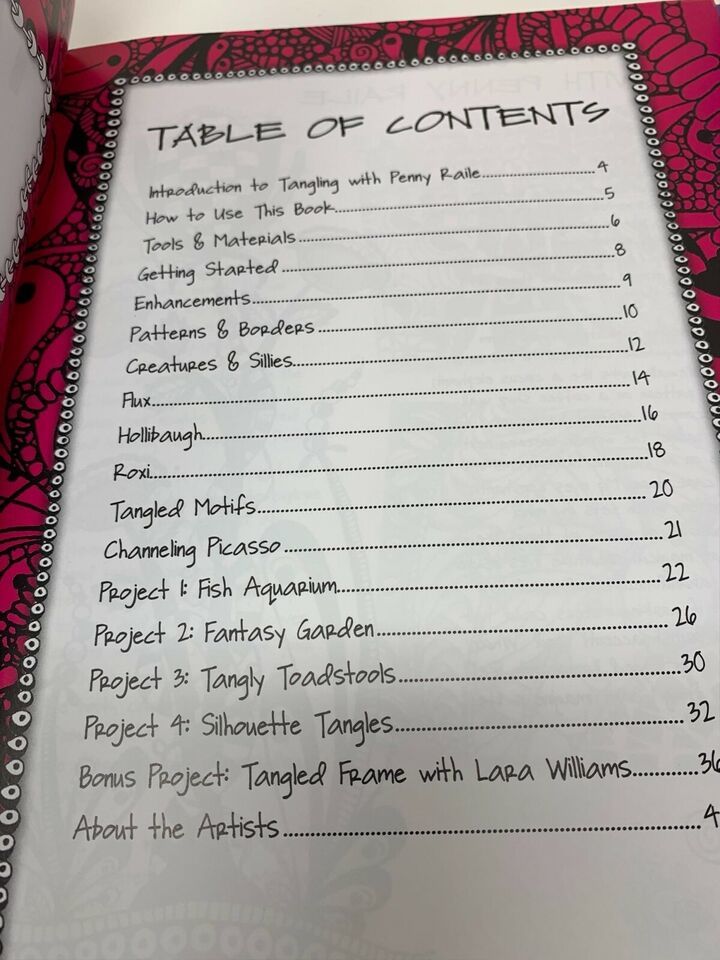 TABLE OF CONTENTS
Introduction to Tangling with Penny Raile 4
How to Use This Book 5
Tools & Materials 6
Getting Started 8
Enhancements 9
Patterns & Borders 10
Creatures & Sillies 12
Flux 14
Hollibaugh 16
Roxi 18
Tangled Motifs 20
Channeling Picasso 21
Project 1: Fish Aquarium 22
Project 2: Fantasy Garden 26
Project 3: Tangly Toadstools 30
Project 4: Silhouette Tangles 32
Bonus Project: Tangled Frame with Lara Williams 36
About the Artists 4